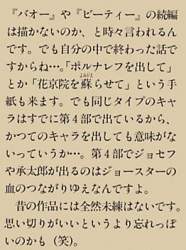 『バオー』や『ビーティー』の続編
は描かないのか、と時々言われるん
です。でも自分の中で終わった話で
すからね…。「ポルナレフを出して」
とか「花京院を蘇らせて」という手
紙も来ます。でも同じタイプのキャ
ラはすでに第4部で出ているから、
かつてのキャラを出しても意味がな
いっていうか…。第4部でジョセフ
や承太郎が出るのはジョースターの
血のつながりゆえなんですよ。
昔の作品には全然未練はないです。
思い切りがいいというより忘れっぽ
いのかも（笑）。